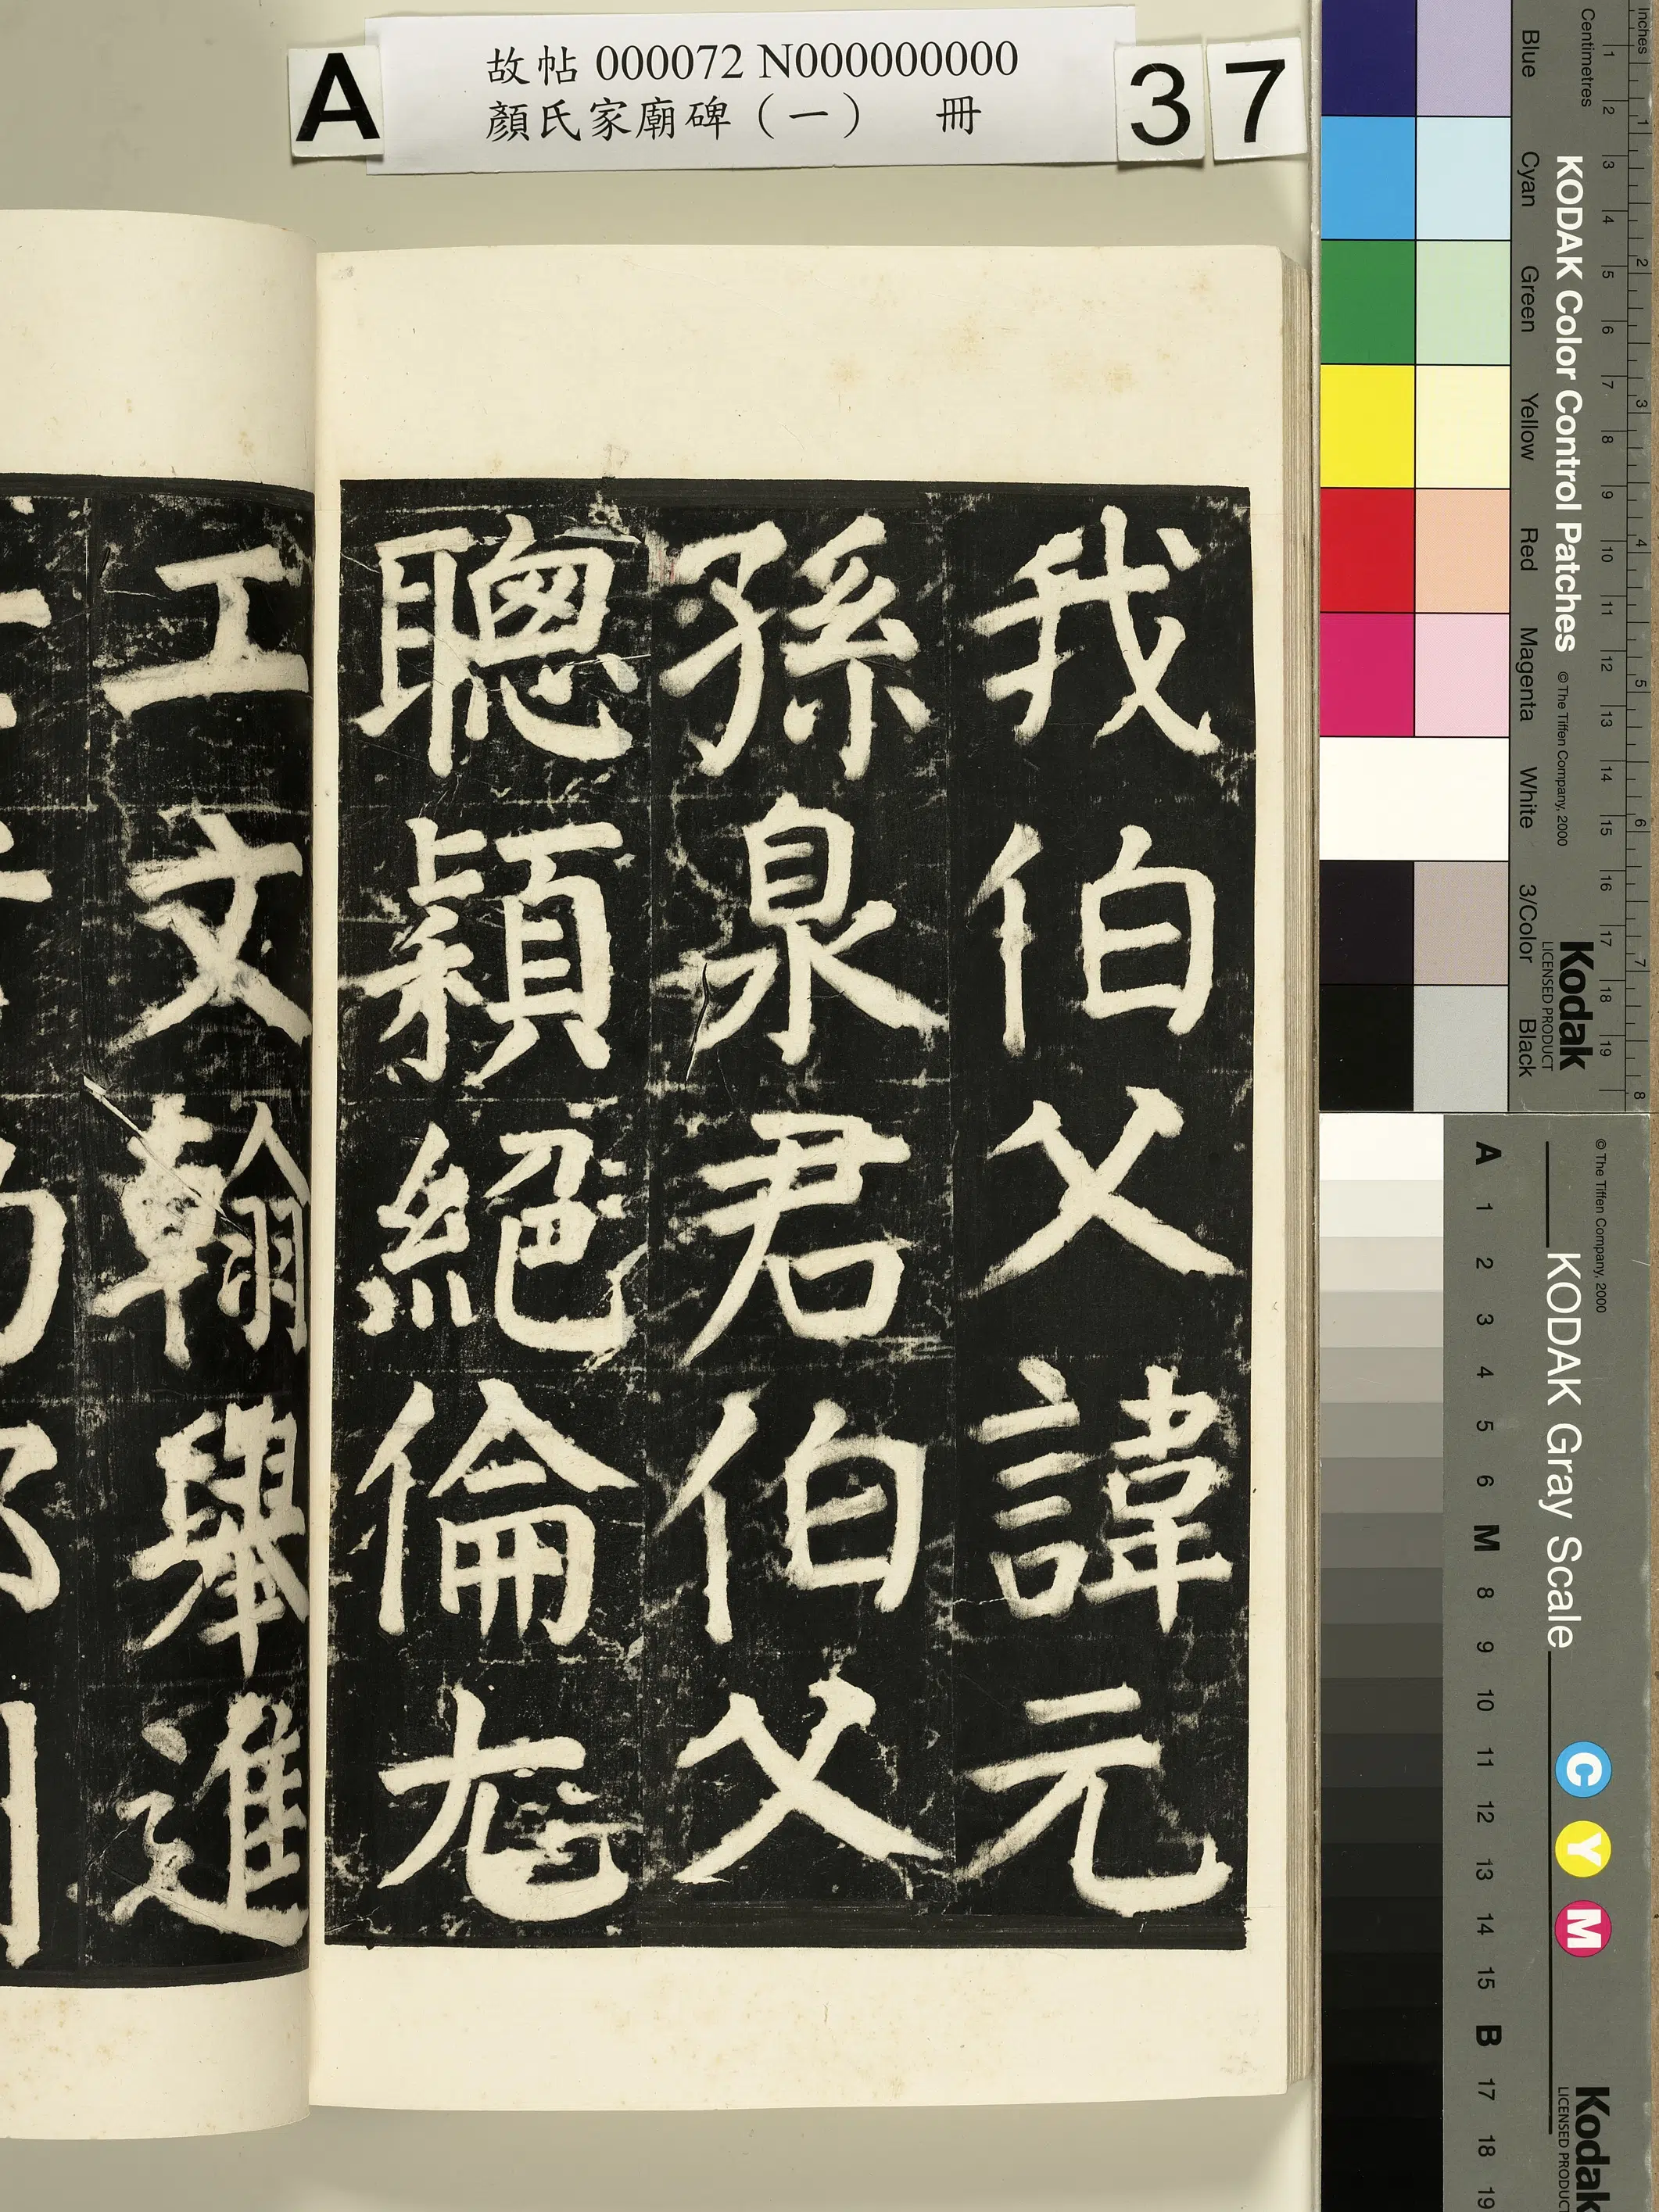 A
故帖 000072 N000000000
顏氏家廟碑（一） 冊
37
我伯父諱元
孫泉君伯父
聰穎絕倫尤
工文翰舉進
Inches
Centimetres
1 2 3 4 5 6 7 8
1 2 3 4 5 6 7 8 9 10 11 12 13 14 15 16 17 18 19
KODAK Color Control Patches
© The Tiffen Company, 2000
Kodak
LICENSED PRODUCT
Blue Cyan Green Yellow Red Magenta White 3/Color Black
© The Tiffen Company, 2000
KODAK Gray Scale
C Y M
Kodak
LICENSED PRODUCT
A 1 2 3 4 5 6 M 8 9 10 11 12 13 14 15 B 17 18 19